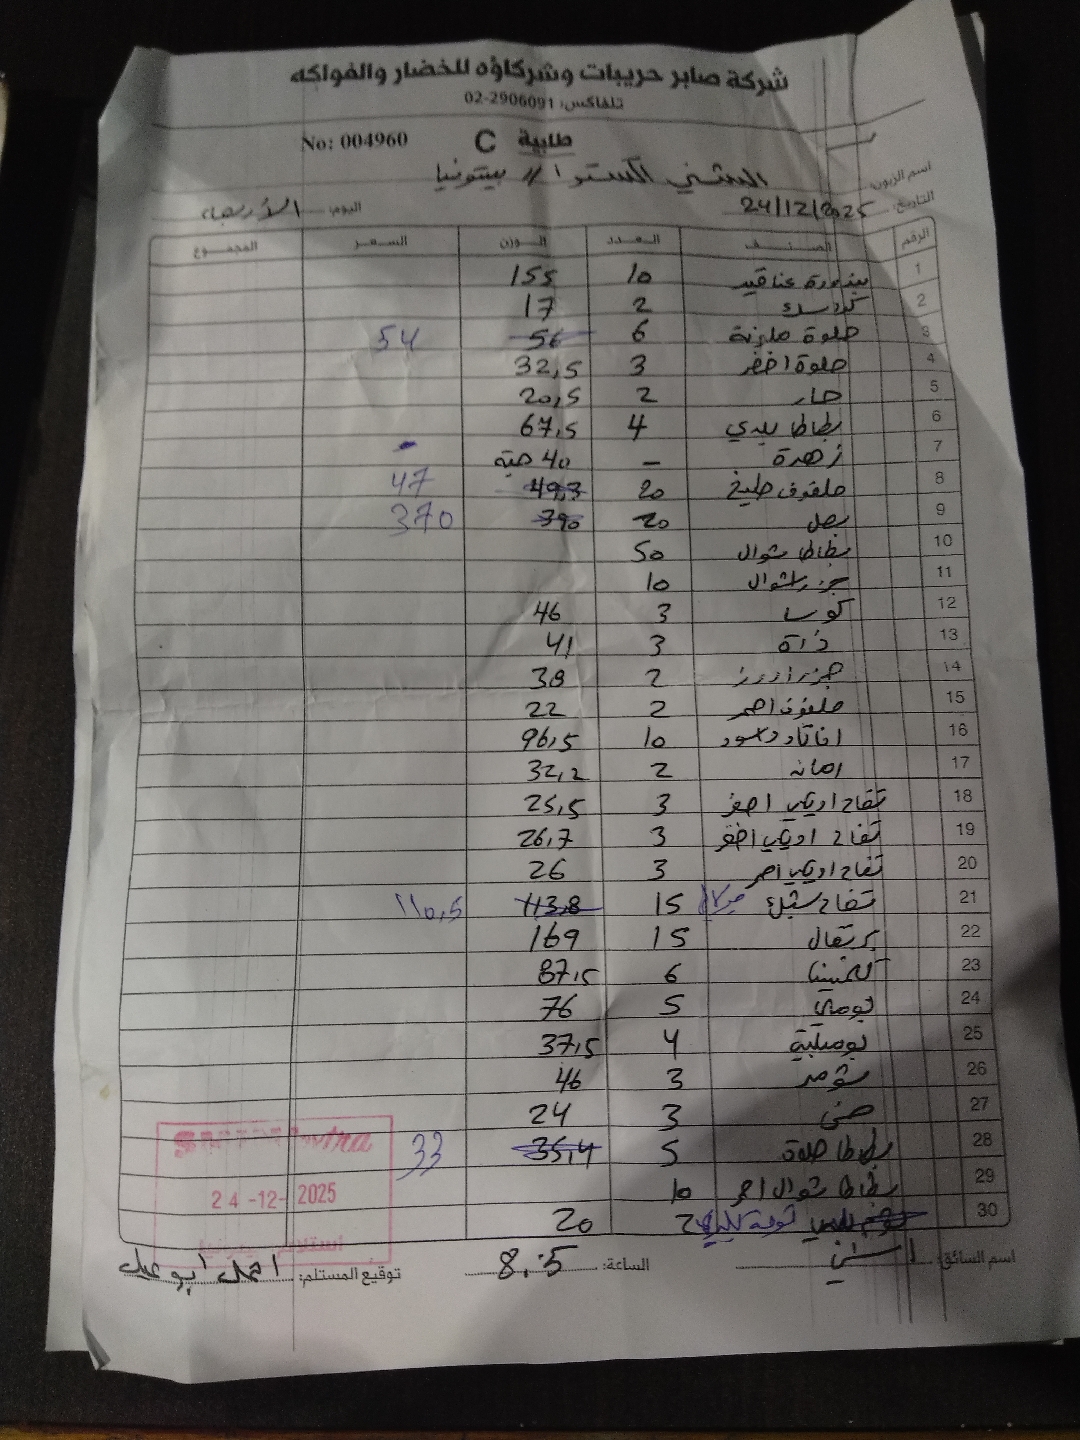 شركة صابر حريبات وشركاؤه للخضار والفواكه
تلفاكس: 02-2906091
طلبية C No: 004960
اسم الزبون: الشني اكسترا // بيتونيا
التاريخ: 24/12/2025 اليوم: الأربعاء
الرقم الصنف العدد الوزن السعر المجموع
1 بندورة عناقيد 10 155
2 2 17
3 حلوة ملونة 6 56 54
4 حلوة اخضر 3 32,5
5 حار 2 20,5
6 بطاطا بلدي 4 67,5
7 زهرة - 40 حبة
8 ملفوف طبيخ 20 49,3 47
9 بصل 20 390 370
10 بطاطا شوال 50
11 جزر شوال 10
12 كوسا 3 46
13 ذرة 3 41
14 جزر 2 38
15 ملفوف احمر 2 22
16 10 96,5
17 2 32,2
18 تفاح اصفر 3 25,5
19 تفاح اخضر 3 26,7
20 تفاح احمر 3 26
21 تفاح 15 113,8 110,5
22 برتقال 15 169
23 كلمنتينا 6 87,5
24 بوملي 5 76
25 4 37,5
26 شومر 3 46
27 3 24
28 بطاطا حلوة 5 35,4 33
29 بطاطا شوال احمر 10
30 2 20
اسم السائق: الساعة: 8:05 توقيع المستلم: احمد ابو عيد
Extra
24-12-2025
استلام بيتونيا